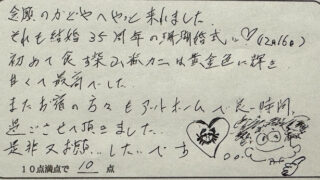 念願のかどやへやっと来れました。
それも結婚35周年の珊瑚婚式に♡(12/16)
初めて食す みかんは黄金色に輝き
甘くて最高でした
またお宿の方々もアットホームで 時間
過ごさせて頂きました。
是非又お願 したいです
10点満点で 10 点